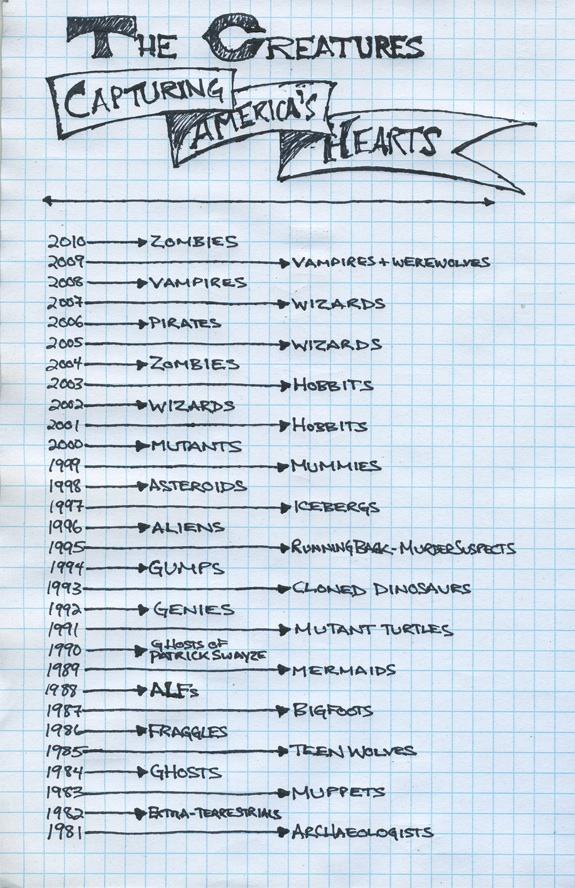 THE CREATURES
CAPTURING
AMERICA'S
HEARTS
2010 ZOMBIES
2009 VAMPIRES + WEREWOLVES
2008 VAMPIRES
2007 WIZARDS
2006 PIRATES
2005 WIZARDS
2004 ZOMBIES
2003 HOBBITS
2002 WIZARDS
2001 HOBBITS
2000 MUTANTS
1999 MUMMIES
1998 ASTEROIDS
1997 ICEBERGS
1996 ALIENS
1995 RUNNING BACK - MURDER SUSPECTS
1994 GUMPS
1993 CLONED DINOSAURS
1992 GENIES
1991 MUTANT TURTLES
1990 GHOSTS OF
PATRICK SWAYZE
1989 MERMAIDS
1988 ALFs
1987 BIGFOOTS
1986 FRAGGLES
1985 TEEN WOLVES
1984 GHOSTS
1983 MUPPETS
1982 EXTRA-TERRESTRIALS
1981 ARCHAEOLOGISTS